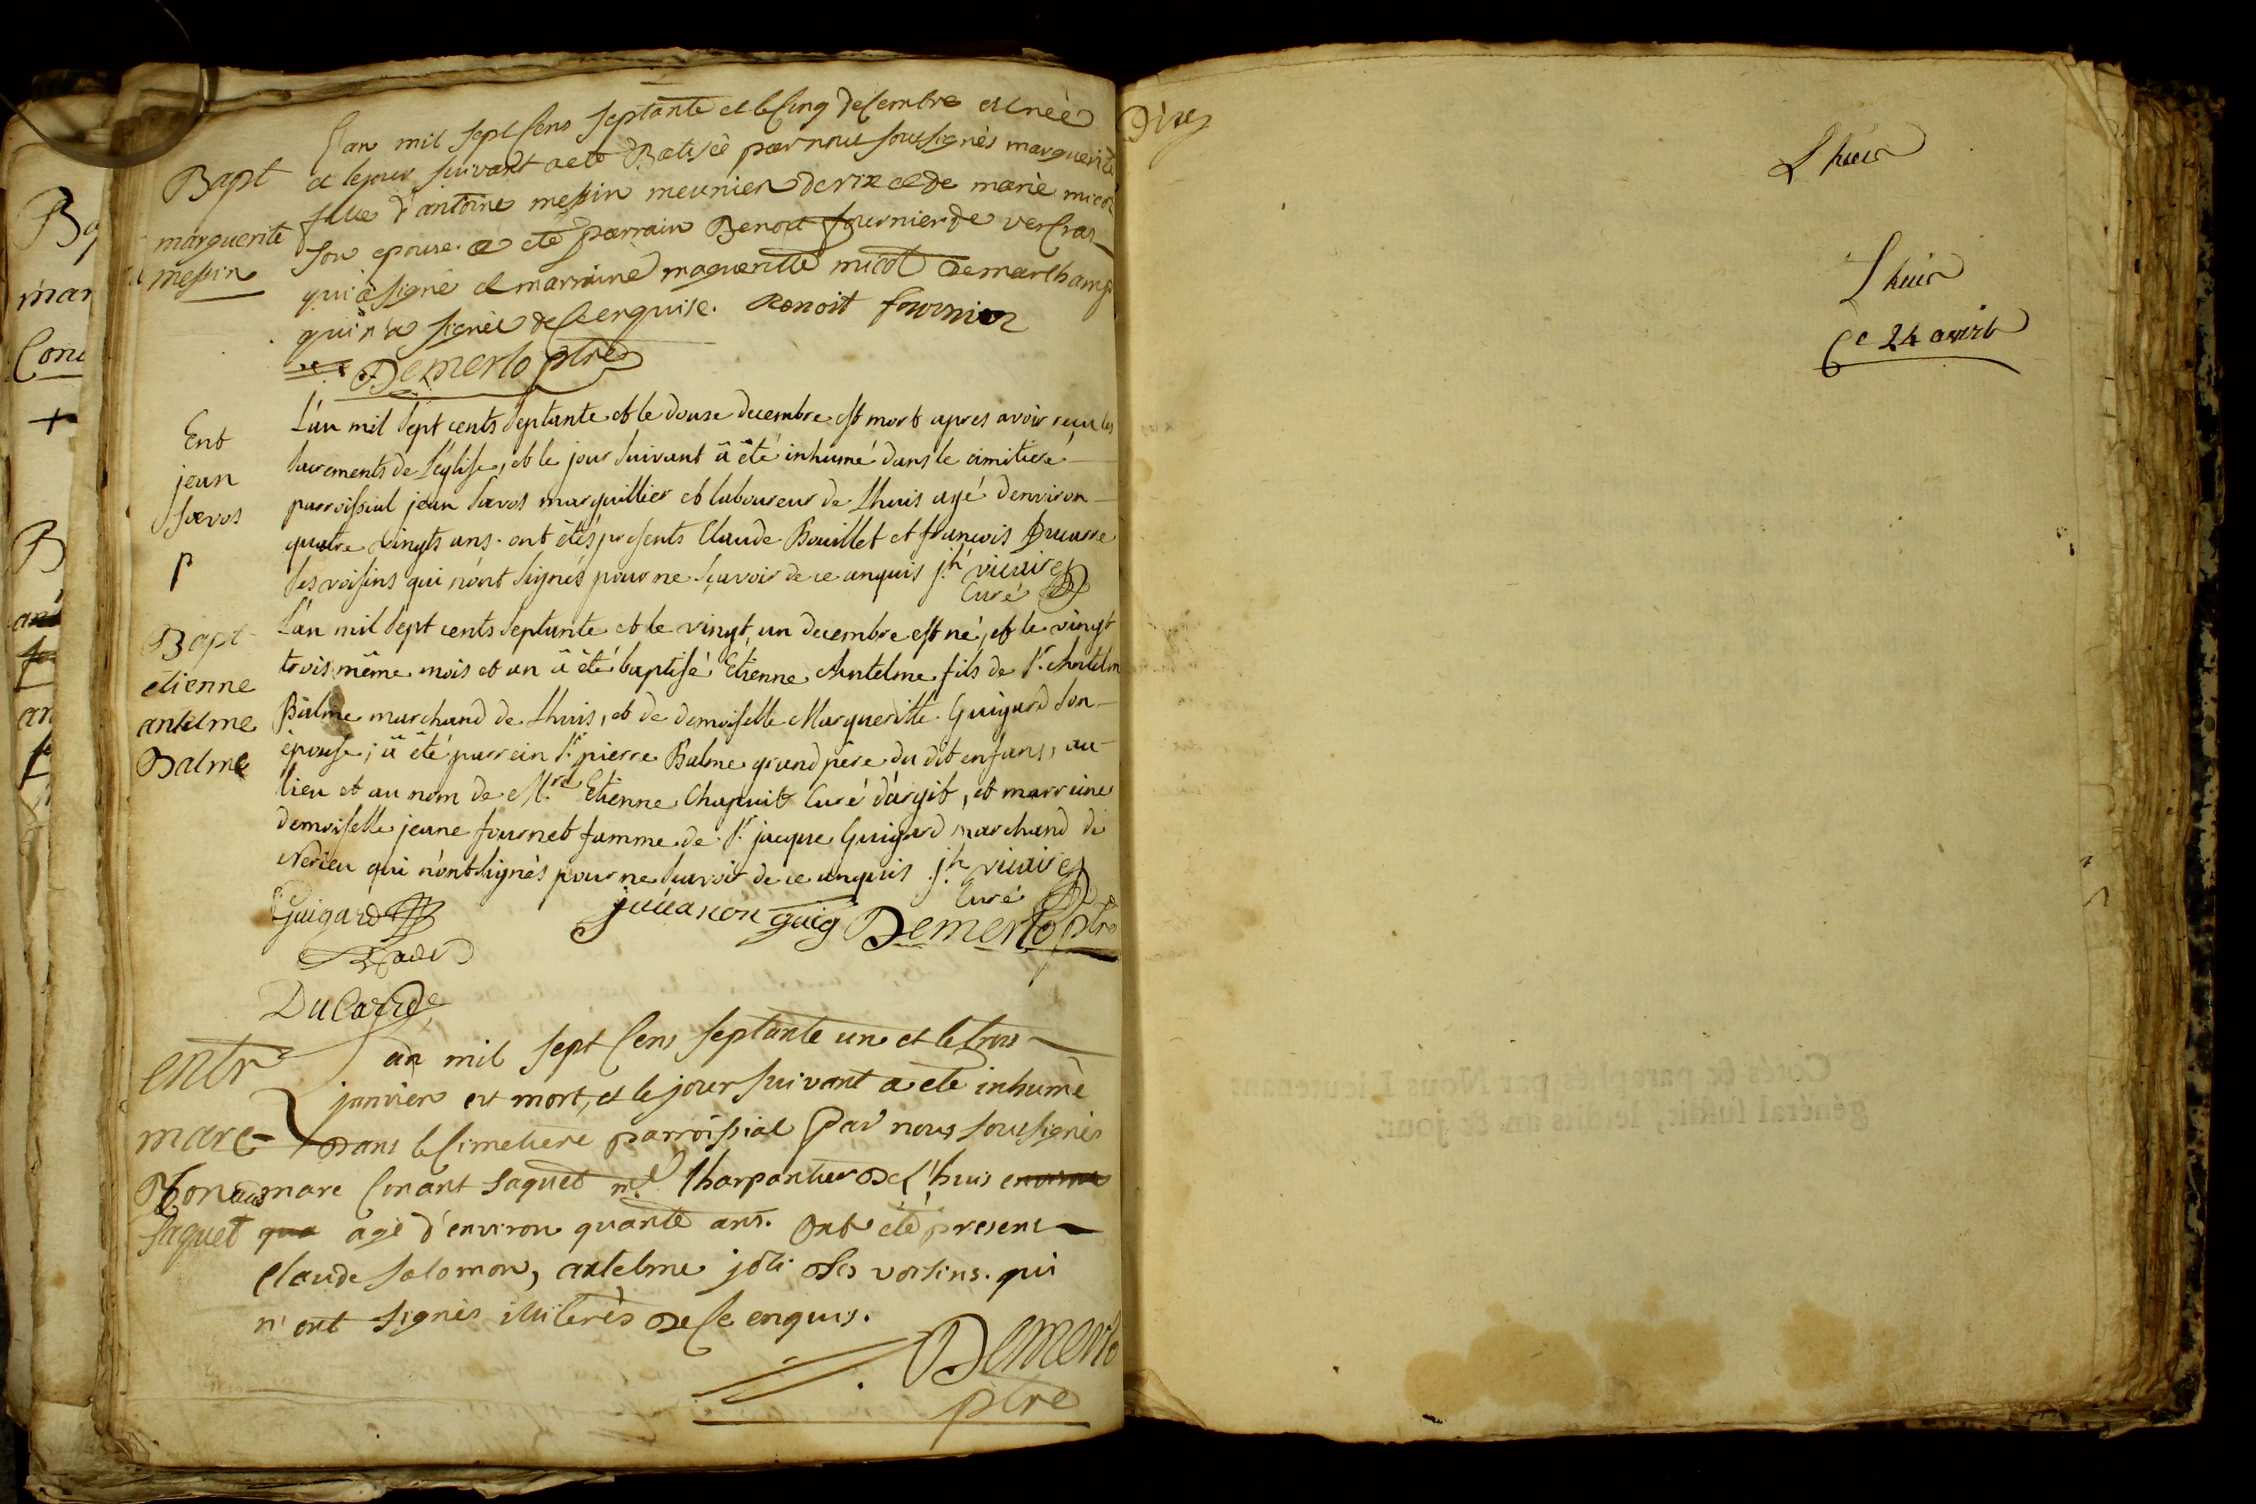 Bapt
marguerite
messin
L'an mil sept Cens septante et le Cinq decembre est neè
et le jour suivant a etè Batisèe par nous soussignès marguerite
fille d'antoine messin meunier de rix et de marie micol
son epouse. a eté parrain Benoit fournier de versras
qui à signé et marraine marguerite micol de marchamp
qui n'a signée de Ce enquise. Benoit fournier
Demerlo ptre
Ent
jean
sœvos
p
L'an mil sept cents septante et le douze decembre est mort apres avoir reçu les
sacrements de l'eglise, et le jour suivant â êté inhumé dans le cimitiere
parroissial jean sœvos marguillier et laboureur de Lhuis agé d'environ
quatre vingts ans. ont êtés presents Claude Bouillet et françois Ducarre
ses voisins qui n'ont signés pour ne sçavoir de ce enquis j.h vicaire
Curé
Bapt
etienne
antelme
Balme
L'an mil sept cents septante et le vingt un decembre est né, et le vingt
trois même mois et an â êté baptisé Etienne Antelme fils de s.r Antelm
Balme marchand de Lhuis, et de demoiselle Margueritte Guigard son
épouse; â êté parrain s.r pierre Balme grand père du dit enfans, au
lieu et au nom de M.re Etienne Chapuit Curé d'argit, et marreine
demoiselle jeane fournet famme de s.r jacque Guigard marchand de
Verieu qui n'ont signés pour ne savoir de ce enquis. j.h vicaire
Curé
Guigard
guig Demerlo ptre
Ducarre
entr
marc
Conans
saquet
L'an mil sept Cens septante un et le trois
janvier est mort, et le jour suivant a eté inhumè
Dans le Cimetiere parroissial Par nous soussignès
marc Conant saquet m.e Charpantier de L'huis environ
qua agé d'environ quante ans. Ont eté present
Claude solomon, antelme joli ses voisins. qui
n'ont signès illiterès de Ce enquis.
Demerlo
ptre
Dixe
Lhuis
Lhuis
Ce 24 avril